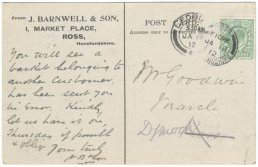 From J. BARNWELL & SON,
1, MARKET PLACE,
ROSS,
Herefordshire.
POST
You will see a
basket belonging to
another Customer
has been sent you
in Error. Kindly
let us have it on
Thursday
& oblige Yours truly
J. B & Son
Mr Goodwin
March
Dymock
JA 15
12